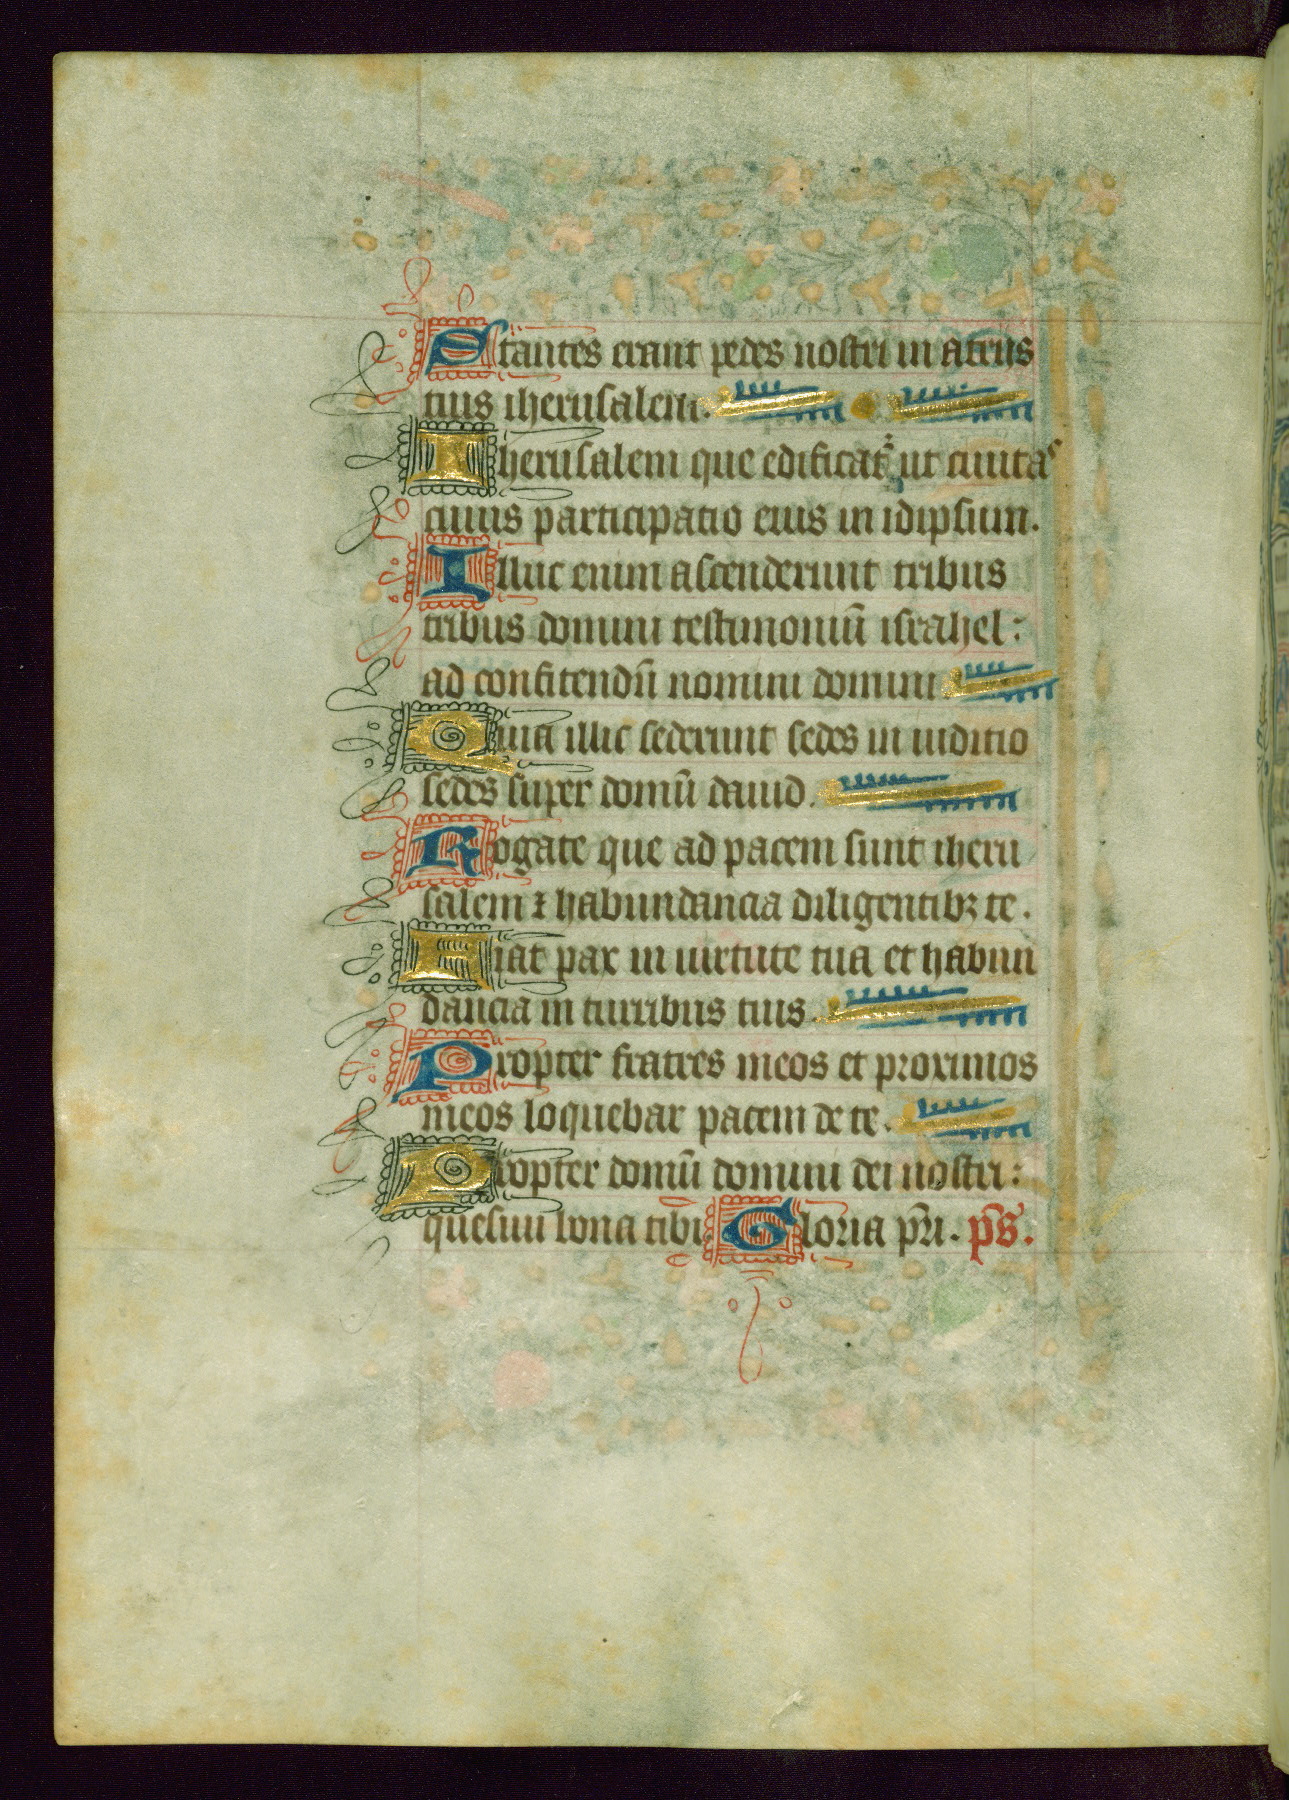 Stantes erant pedes nostri in atrijs
tuis iherusalem.
Iherusalem que edificat᷑ ut ciuitas
cuius participatio eius in idipsum.
Illuc enim ascenderunt tribus
tribus domini testimoniū israhel:
ad confitendū nomini domini
Quia illic sederunt sedes in iuditio
sedes super domū dauid.
Rogate que ad pacem sunt iheru
salem ⁊ habundancia diligentibꝫ te.
Fiat pax in uirtute tua et habun
dancia in turribus tuis.
Propter fratres meos et proximos
meos loquebar pacem de te.
Propter domū domini dei nostri:
quesiui bona tibi Gloria pr̄i. ps̄.